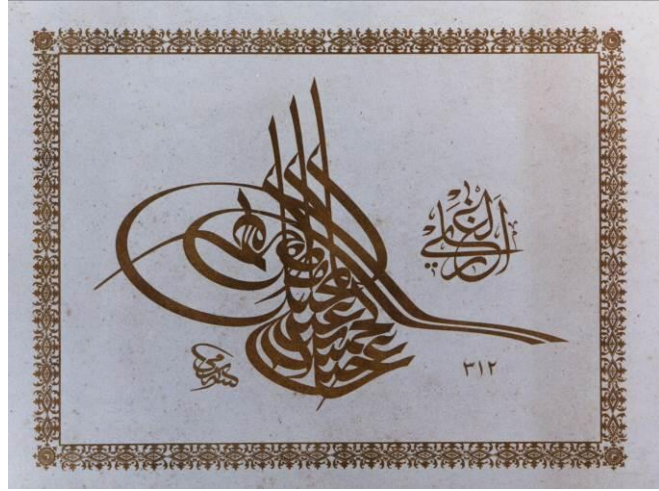 الغازي
عبد الحميد خان بن عبد المجيد المظفر دائما
٣١٢